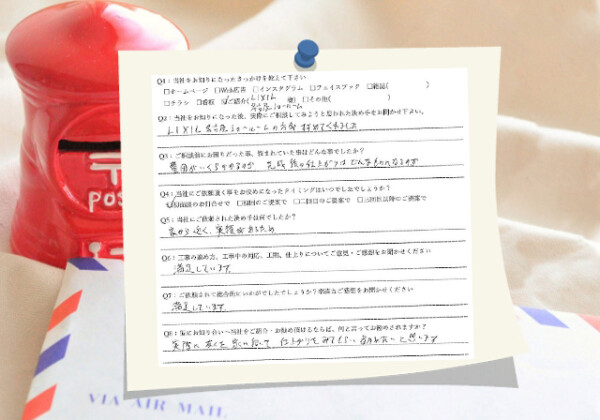 Q1：当社をお知りになったきっかけを教えて下さい
□ホームページ □Web広告 □インスタグラム □フェイスブック □雑誌（ ）
□チラシ □看板 ☑ご紹介（LIXIL 名古屋ショールーム 様） □その他（ ）
Q2：当社をお知りになった後、実際にご相談してみようと思われた決め手をお聞かせ下さい。
LIXIL 名古屋ショールームの方が
Q3：ご相談前にお困りだった事、悩まれていた事はどんな事でしたか？
費用がいくらかかるのか 完成後の仕上がりはどんなものになるのか
Q4：当社にご依頼頂く事をお決めになったタイミングはいつでしたでしょうか？
□初回のご提案で □二回目のご提案で □三回目以降のご提案で
Q5：当社にご依頼された決め手は何でしたか？
家から近く、実績があるため
Q6：工事の進め方、工事中の対応、工期、仕上りについてご意見・ご感想をお聞かせください
満足しています
Q7：ご依頼されて総合的にいかがでしたでしょうか？率直なご感想をお聞かせください
満足しています
Q8：仮にお知り合いへ当社をご紹介・お勧め頂けるならば、何と言ってお勧めされますか？
実際に 仕上がりをみてもらい と思います
POS
VIA AIR MAIL